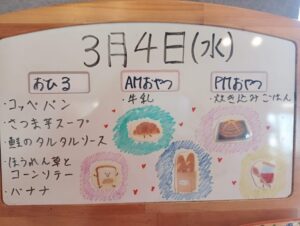 3月4日(水)
おひる
・コッペパン
・さつま芋スープ
・鮭のタルタルソース
・ほうれん草と
コーンソテー
・バナナ
AMおやつ
牛乳
PMおやつ
・炊き込みごはん